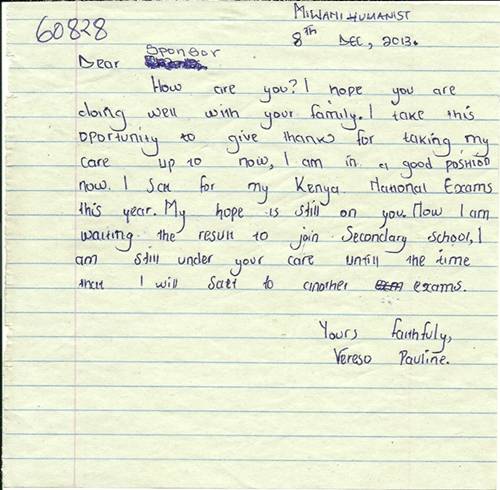 MIWANI HUMANIST
60828
8th DEC, 2013.
Sponsor
Dear
How are you? I hope you are
doing well with your family. I take this
oportunity to give thanks for taking my
care up to now, I am in a good position
now. I sat for my Kenya National Exams
this year. My hope is still on you. Now I am
waiting the result to join Secondary school, I
am still under your care untill the time
that I will satt to another exams.
Yours faithfuly,
Vereso Pauline.